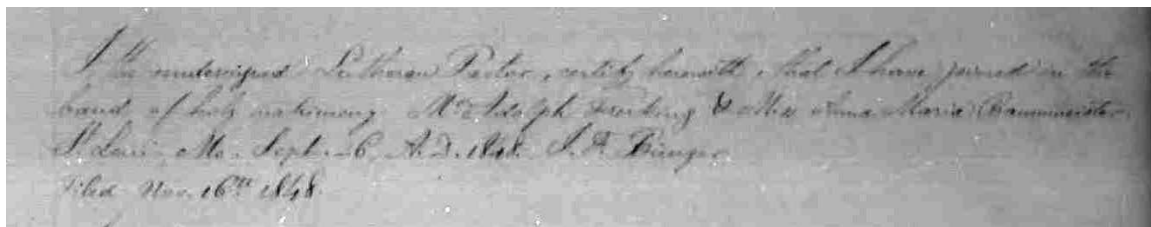 I, the undersigned Lutheran Pastor, certify herewith, that I have joined in the
band of holy matrimony Mr Adolph Freiking & Miss Anna Maria Baumeister,
St Louis, Mo. Sept. 6, A.D. 1848. J. F. Bünger
Filed Nov. 16th 1848.